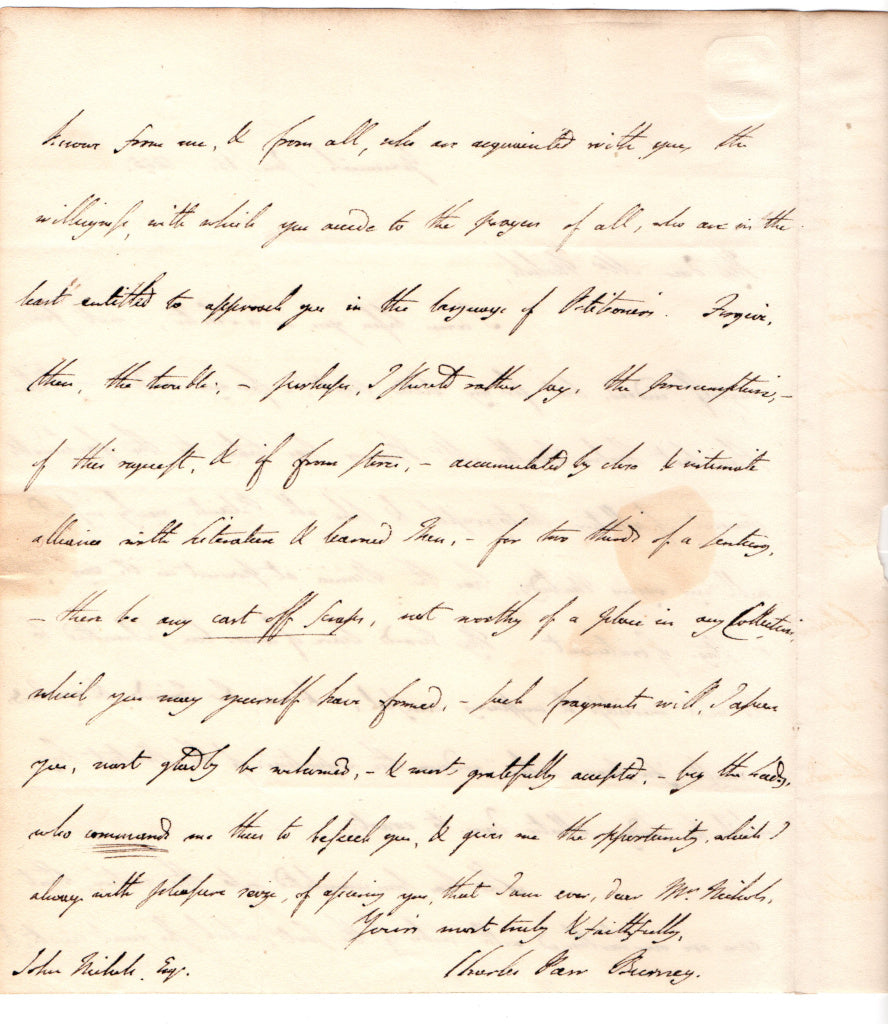 knows from me, & from all, who are acquainted with you, the
willingness, with which you accede to the prayers of all, who are in the
least entitled to approach you in the language of Petitioners. Forgive,
then, the trouble, – perhaps, I should rather say, the presumption, –
of this request, & if from stores, – accumulated by close & intimate
alliance with Literature & learned Men, – for two thirds of a Century,
– there be any cast off scraps, not worthy of a place in any Collection,
which you may yourself have formed, – such fragments will, I assure
you, most gladly be welcomed, – & most gratefully accepted, – by the Lady,
who commands me thus to beseech you, & gives me the opportunity, which I
always with pleasure seize, of assuring you, that I am ever, dear Mr. Nichols,
Yours most truly & faithfully,
Charles Parr Burney.
John Nichols Esq.